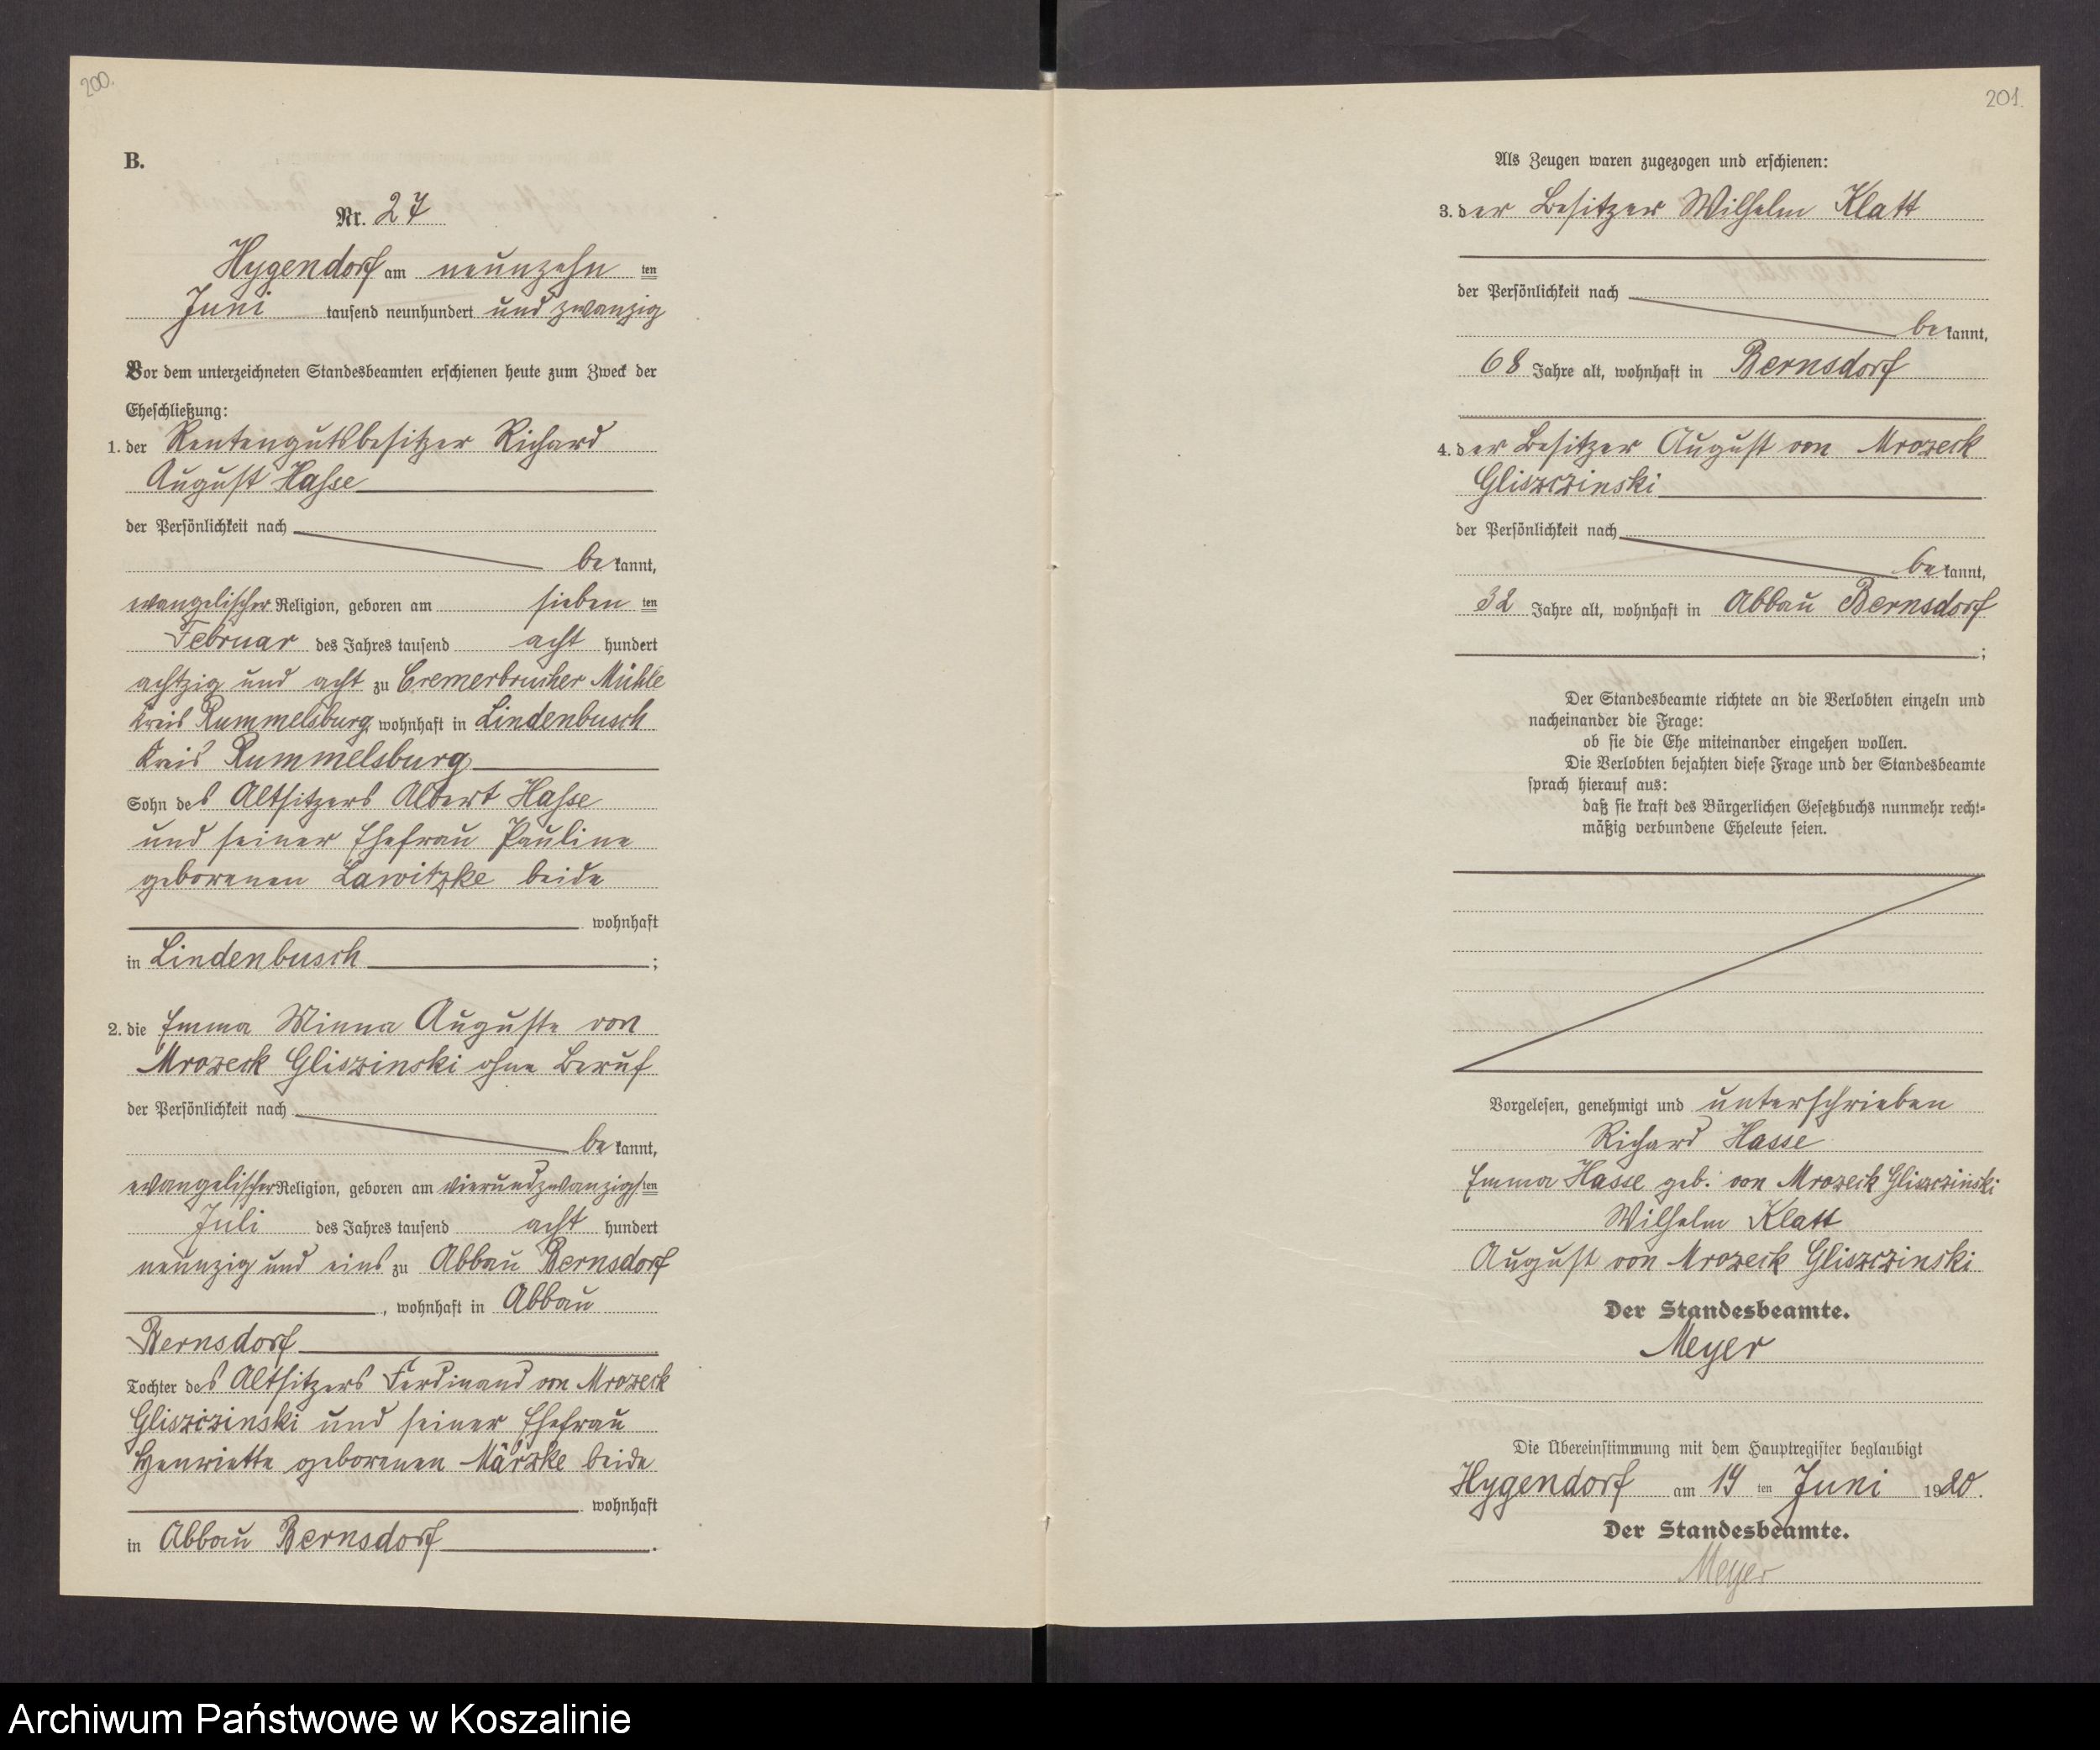 200.
B.
Nr. 27
Hygendorf am neunzehn ten
Juni tausend neunhundert und zwanzig
Vor dem unterzeichneten Standesbeamten erschienen heute zum Zweck der
Eheschließung:
1. der Rentengutsbesitzer Richard
August Hasse
der Persönlichkeit nach
be kannt,
evangelischer Religion, geboren am sieben ten
Februar des Jahres tausend acht hundert
achtzig und acht zu Cremerbrucher Mühle
Kreis Rummelsburg, wohnhaft in Lindenbusch
Kreis Rummelsburg
Sohn des Altsitzers Albert Hasse
und seiner Ehefrau Pauline
geborenen Lawitzke beide
wohnhaft
in Lindenbusch ;
2. die Emma Minna Auguste von
Mrozeck Gliszinski ohne Beruf
der Persönlichkeit nach
be kannt,
evangelischer Religion, geboren am vierundzwanzigsten
Juli des Jahres tausend acht hundert
neunzig und eins zu Abbau Bernsdorf
, wohnhaft in Abbau
Bernsdorf
Tochter des Altsitzers Ferdinand von Mrozeck
Gliszczinski und seiner Ehefrau
Henriette geborenen Märzke beide
wohnhaft
in Abbau Bernsdorf .
201.
Als Zeugen waren zugezogen und erschienen:
3. der Besitzer Wilhelm Klatt
der Persönlichkeit nach
be kannt,
68 Jahre alt, wohnhaft in Bernsdorf
4. der Besitzer August von Mrozeck
Gliszczinski
der Persönlichkeit nach
be kannt,
32 Jahre alt, wohnhaft in Abbau Bernsdorf
;
Der Standesbeamte richtete an die Verlobten einzeln und
nacheinander die Frage:
ob sie die Ehe miteinander eingehen wollen.
Die Verlobten bejahten diese Frage und der Standesbeamte
sprach hierauf aus:
daß sie kraft des Bürgerlichen Gesetzbuchs nunmehr recht-
mäßig verbundene Eheleute seien.
Vorgelesen, genehmigt und unterschrieben
Richard Hasse
Emma Hasse geb. von Mrozeck Gliszczinski
Wilhelm Klatt
August von Mrozeck Gliszczinski
Der Standesbeamte.
Meyer
Die Übereinstimmung mit dem Hauptregister beglaubigt
Hygendorf am 19 ten Juni 1920.
Der Standesbeamte.
Meyer
Archiwum Państwowe w Koszalinie